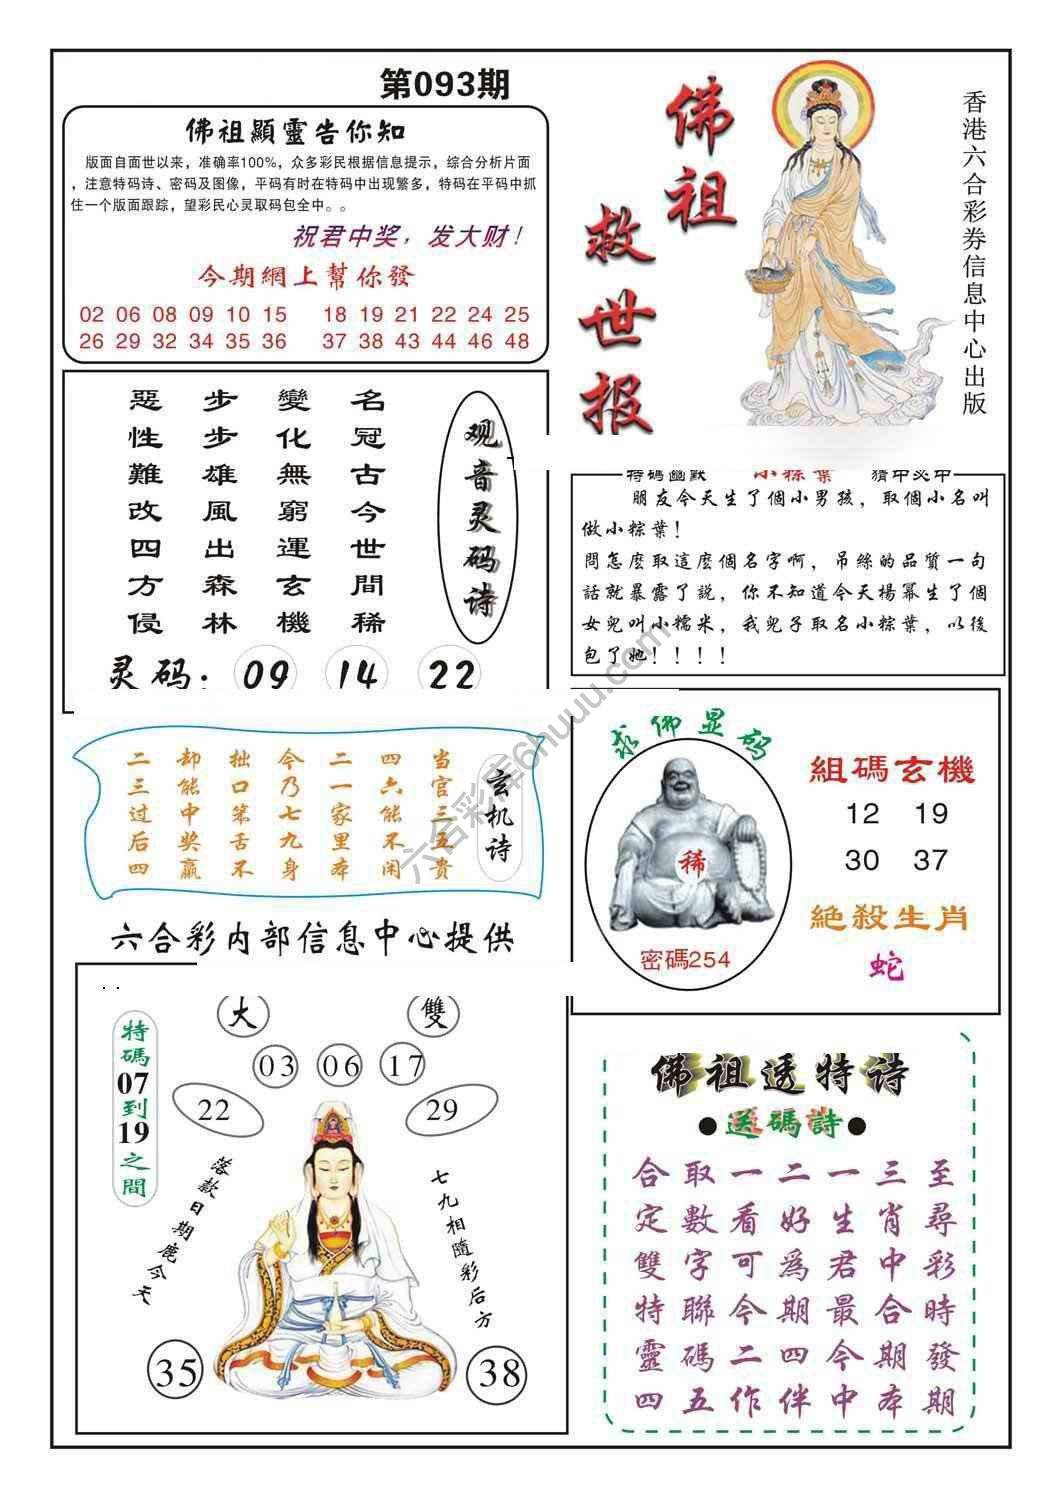 第093期
佛祖顯靈告你知
版面自面世以来，准确率100%，众多彩民根据信息提示，综合分析片面
，注意特码诗、密码及图像，平码有时在特码中出现繁多，特码在平码中抓
住一个版面跟踪，望彩民心灵取码包全中。。
祝君中奖，发大财！
今期網上幫你發
02 06 08 09 10 15 18 19 21 22 24 25
26 29 32 34 35 36 37 38 43 44 46 48
佛祖
救世报
香港六合彩券信息中心出版
观音灵码诗
名冠古今世間稀
變化無窮運玄機
步步雄風出森林
惡性難改四方侵
灵码：09 14 22
特碼幽默 小粽葉 猜中必中
朋友今天生了個小男孩，取個小名叫
做小粽葉！
問怎麽取這麽個名字啊，吊絲的品質一句
話就暴露了説，你不知道今天楊冪生了個
女兒叫小糯米，我兒子取名小粽葉，以後
包了她！！！！
玄机诗
当官三五贵
四六能不闲
二一家里本
今乃七九身
拙口笨舌不
却能中奖赢
二三过后四
求佛显码
稀
密碼254
組碼玄機
12 19
30 37
絶殺生肖
蛇
六合彩内部信息中心提供
特碼07到19之間
大 雙
03 06 17
22 29
落款日期鹿今天
七九相隨彩后方
35 38
佛祖透特诗
●送碼詩●
至尋彩時發期
三肖中合期本
一生君最今中
二好為期四伴
一看可今二作
取數字聯碼五
合定雙特靈四
六合彩库6huuu.com